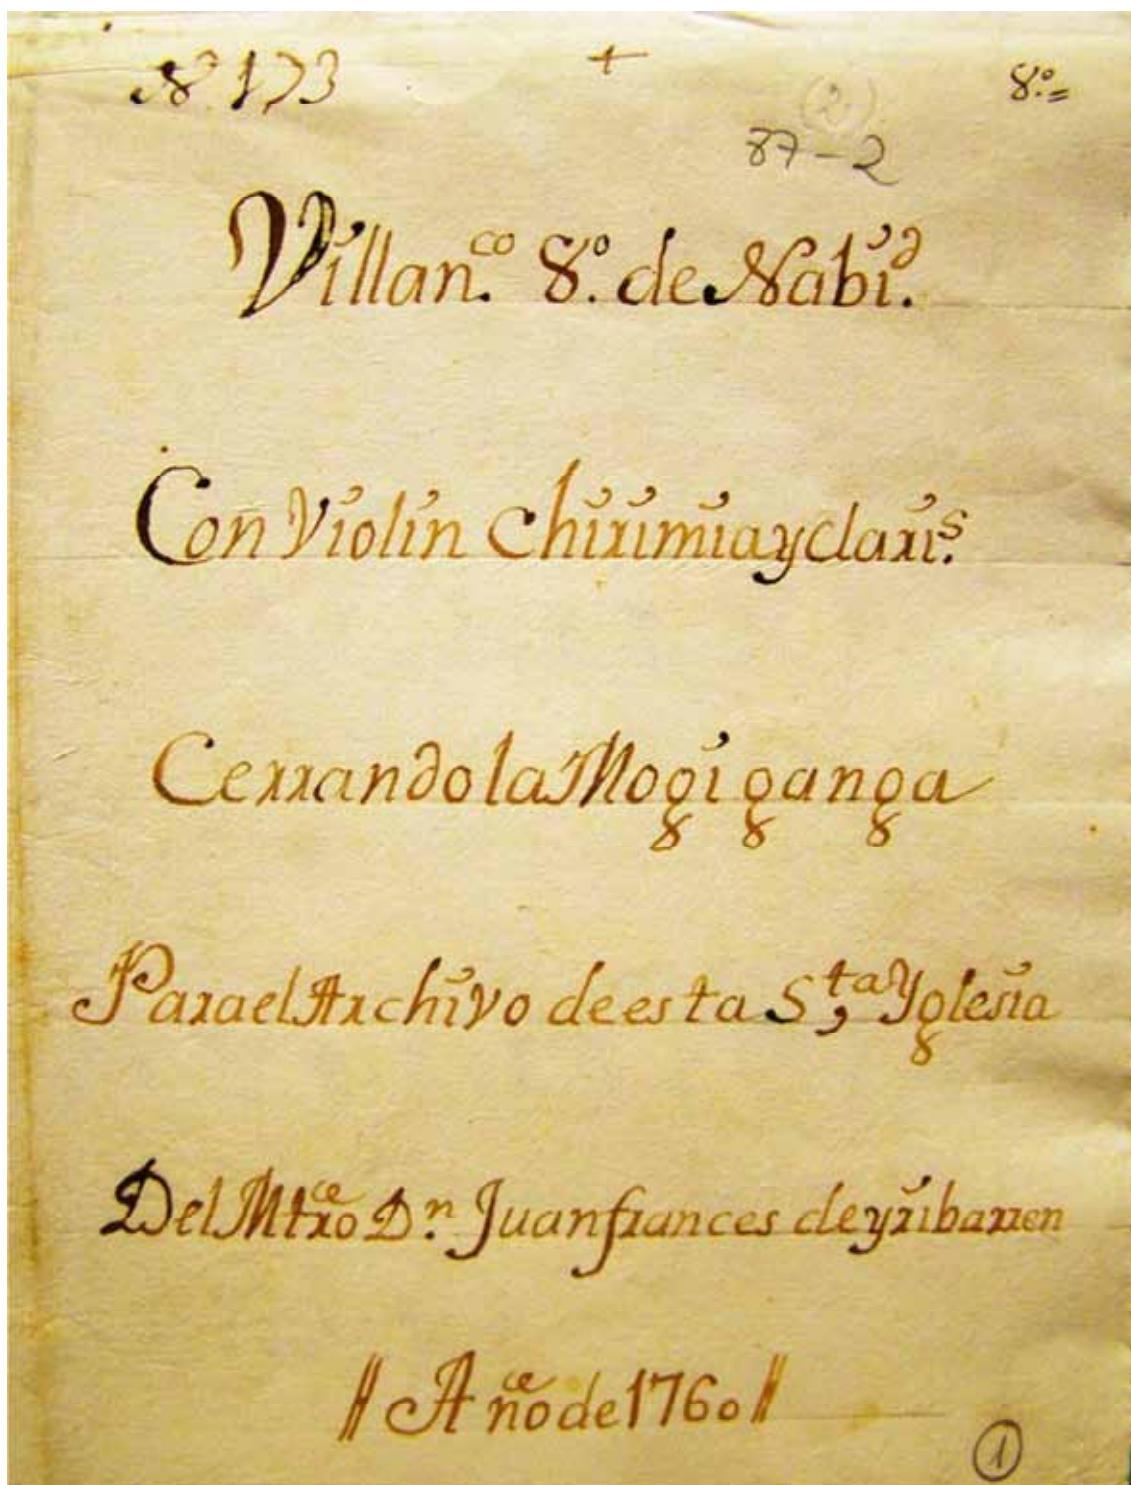 N. 173 + 8.º=
(2)
87-2
Villan.co 8.º de Nabi.d
Con Violin chirimia y clari.s
Cerrando la Mogiganga
Para el Archivo de esta S.ta Yglesia
Del Mtro D.n Juan frances de yribarren
// Año de 1760 //
1